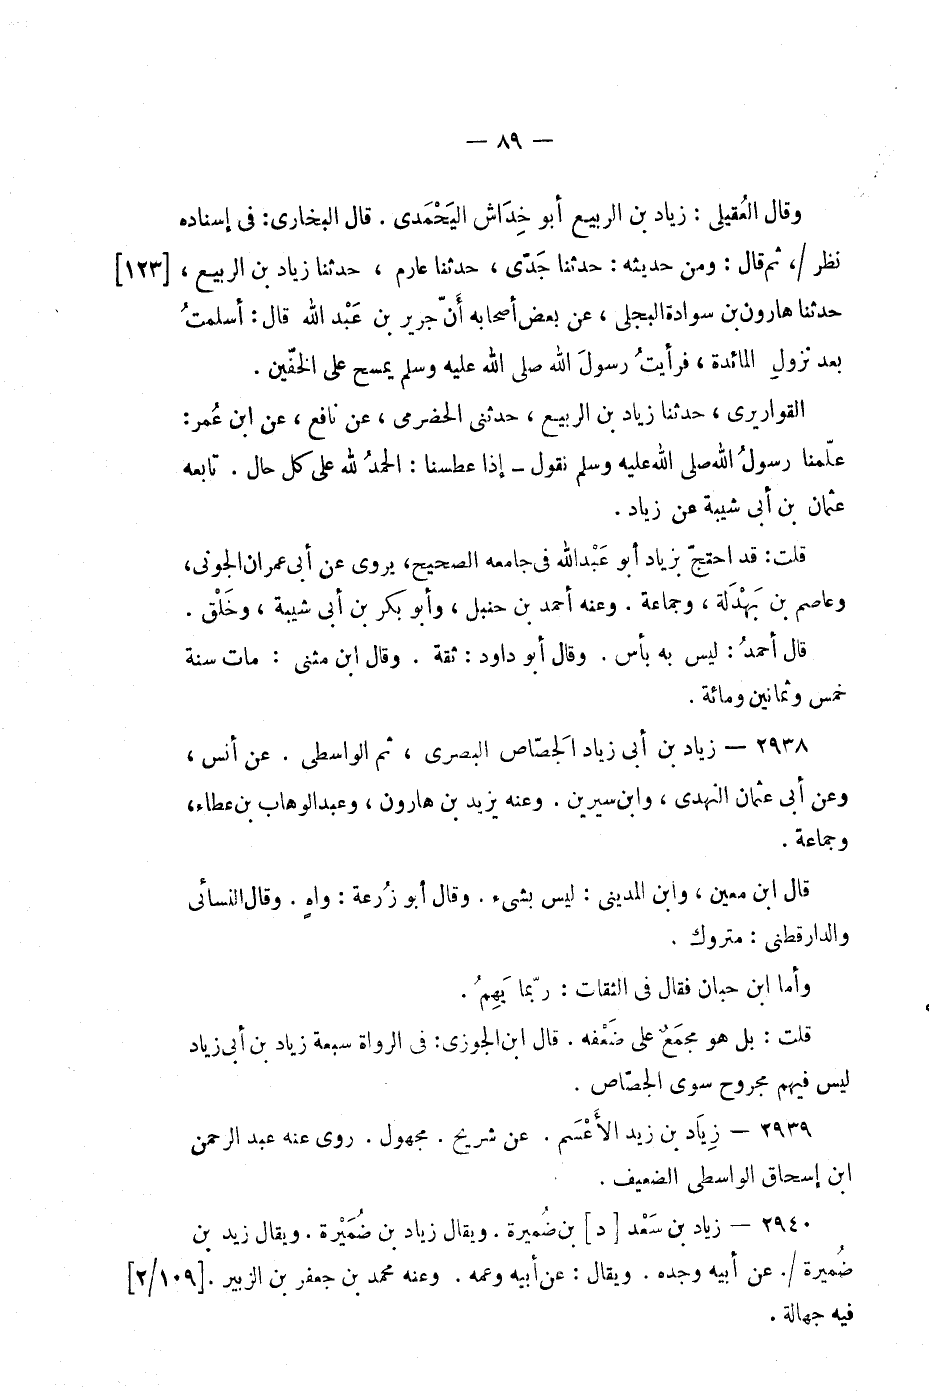 — ٨٩ —
وقال العُقيلى : زياد بن الربيع أبو خِدَاش اليَحْمَدى . قال البخارى: فى إسناده
نظر /، ثم قال : ومن حديثه : حدثنا جَدّى ، حدثنا عارم ، حدثنا زياد بن الربيع ، [١٢٣]
حدثنا هارون بن سوادة البجلى ، عن بعض أصحابه أَنّ جرير بن عَبْد الله قال : أسلمتُ
بعد نزولِ المائدة ، فرأيتُ رسولَ الله صلى الله عليه وسلم يمسح على الخفّين .
القواريرى ، حدثنا زياد بن الربيع ، حدثنى الحضرمى ، عن نافع ، عن ابن عُمر:
علّمنا رسولُ الله صلى الله عليه وسلم نقول ـ إذا عطسنا : الحمدُ لله على كل حال . تابعه
عثمان بن أبى شيبة عن زياد .
قلت: قد احتجّ بزياد أبو عَبْد الله فى جامعه الصحيح، يروى عن أبى عمران الجونى،
وعاصم بن بَهْدَلة ، وجماعة . وعنه أحمد بن حنبل ، وأبو بكر بن أبى شيبة ، وخَلْق .
قال أحمدُ : ليس به بأس . وقال أبو داود : ثقة . وقال ابن مثنى : مات سنة
خمس وثمانين ومائة .
٢٩٣٨ — زياد بن أبى زياد الَجصّاص البصرى ، ثم الواسطى . عن أنس ،
وعن أبى عثمان النهدى ، وابن سيرين . وعنه يزيد بن هارون ، وعبد الوهاب بن عطاء،
وجماعة .
قال ابن معين ، وابن المدينى : ليس بشىء . وقال أبو زُرعة : واهٍ . وقال النسائى
والدارقطنى : متروك .
وأما ابن حبان فقال فى الثقات : ربّما يَهِمُ .
قلت : بل هو مجمَعٌ على ضَعْفه . قال ابن الجوزى: فى الرواة سبعة زياد بن أبى زياد
ليس فيهم مجروح سوى الجصّاص .
٢٩٣٩ — زِيَاد بن زيد الأَعْسَم . عن شريح . مجهول . روى عنه عبد الرحمن
ابن إسحاق الواسطى الضعيف .
٢٩٤٠ — زياد بن سَعْد [ د ] بن ضُميرة . ويقال زياد بن ضُمَيْرة . ويقال زيد بن
ضُميرة /. عن أبيه وجده . ويقال : عن أبيه وعمه . وعنه محمد بن جعفر بن الزبير .[٢/١٠٩]
فيه جهالة .